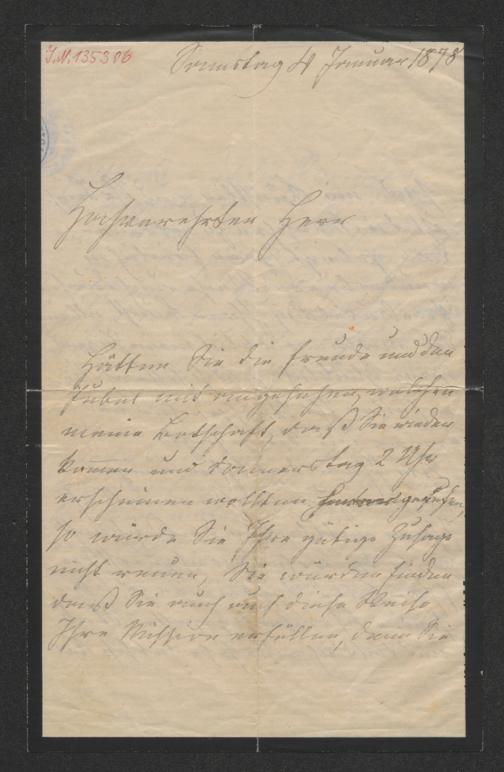 J.N. 135306
Samstag 4 Januar 1878
Hochverehrter Herr
Hätten Sie die Freude und den
Jubel mit angesehen, welchen
meine Botschaft, daß Sie wieder
kommen und Donnerstag 2 Uhr
erscheinen wollten gerufen,
so würde Sie Ihre gütige Zusage
nicht reuen, Sie würden finden
daß Sie auch auf diese Weise
Ihre Mission erfüllen, denn Sie